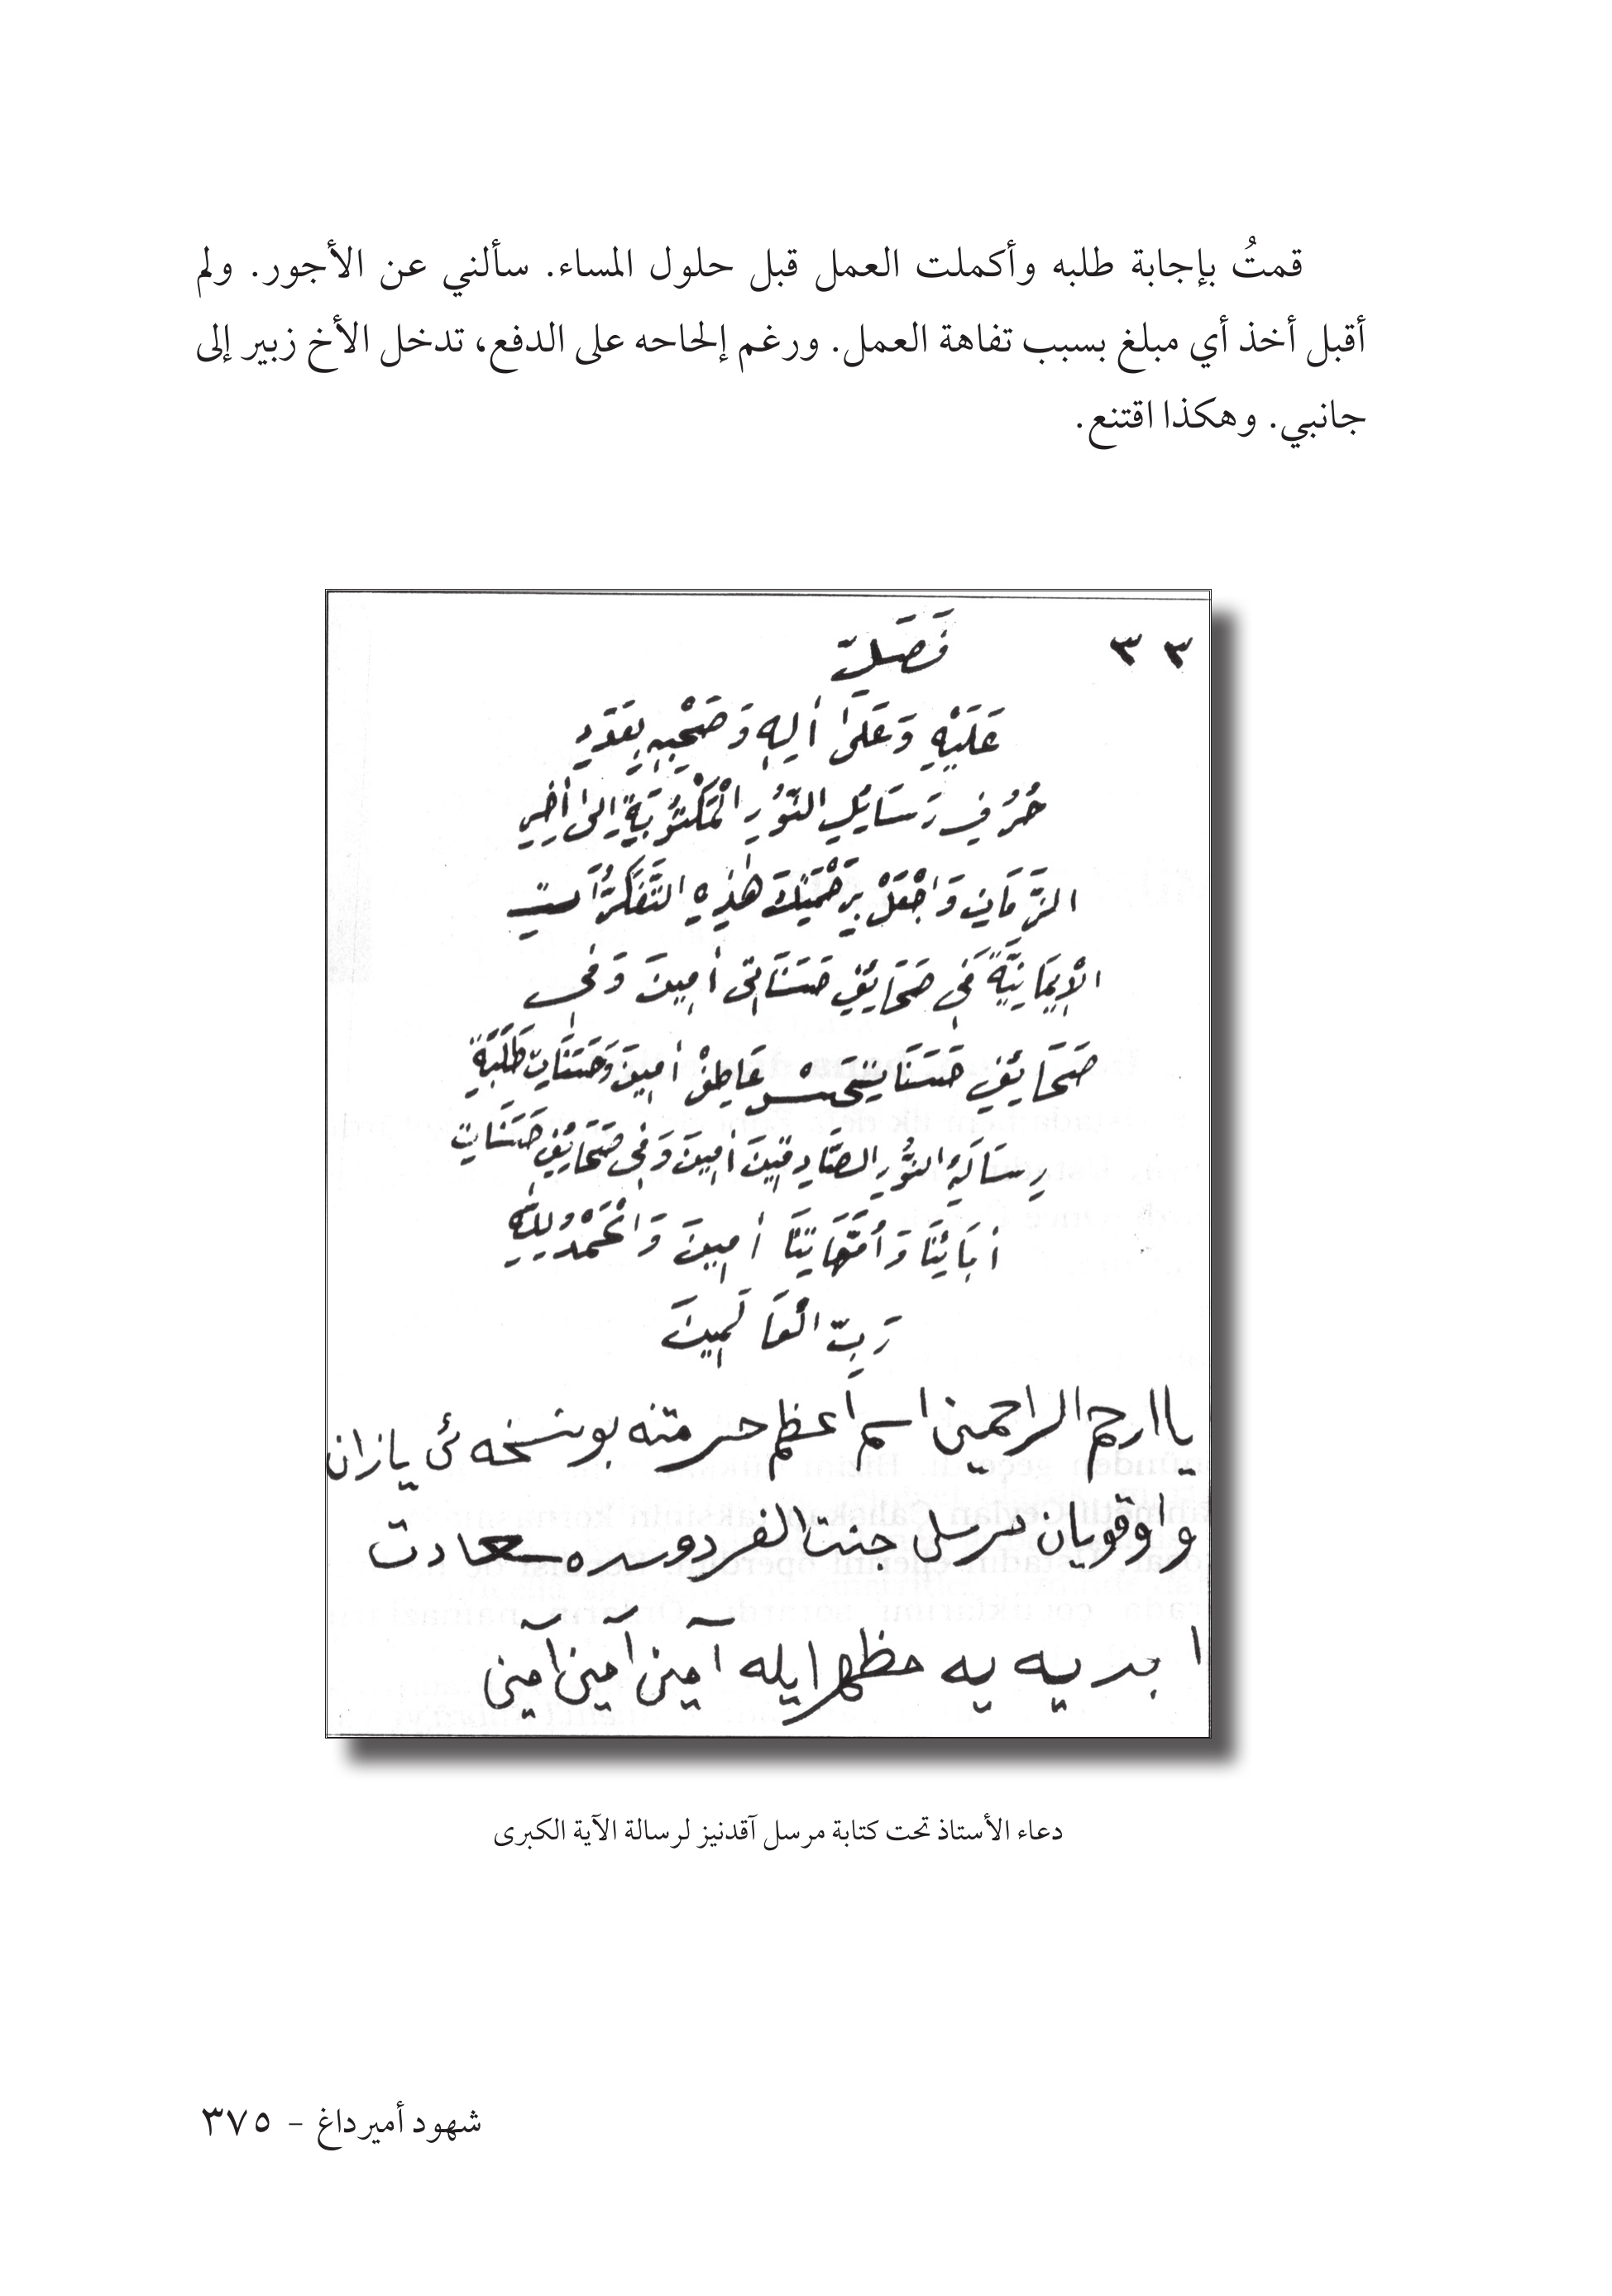 قمتُ بإجابة طلبه وأكملت العمل قبل حلول المساء. سألني عن الأجور. ولم
أقبل أخذ أي مبلغ بسبب تفاهة العمل. ورغم إلحاحه على الدفع، تدخل الأخ زبير إلى
جانبي. وهكذا اقتنع.
٣٣
فَصَلِّ
عَلَيْهِ وَعَلَىٰ أٰلِهِ وَصَحْبِهِ بِعَدَدِ
حُرُوفِ رَسَائِلِ النُّورِ الْمَكْتُوبَةِ إِلىٰ أٰخِرِ
الزَّمَانِ وَاجْعَلْ بِرَحْمَتِكَ هٰذِهِ التَّفَكُّرَاتِ
الْاِيمَانِيَّةِ فِى صَحَائِفِ حَسَنَاتِى أٰمِينَ وَفِى
صَحَائِفِ حَسَنَاتِ عَاطِفْ أٰمِينَ وَحَسَنَاتِ طَلَبَةِ
رِسَالَةِ النُّورِ الصَّادِقِينَ أٰمِينَ وَفِى صَحَائِفِ حَسَنَاتِ
أٰبَائِنَا وَأُمَّهَاتِنَا أٰمِينَ وَالْحَمْدُ لِلّٰهِ
رَبِّ الْعَالَمِينَ
يا ارحم الراحمين اسم اعظم حرمتنه بو نسخه ئى يازان
و اوقويان مرسلى جنت الفردوسده سعادت
ابديه يه مظهر ايله آمين آمين آمين
دعاء الأستاذ تحت كتابة مرسل آقدنيز لرسالة الآية الكبرى
شهود أميرداغ - ٣٧٥